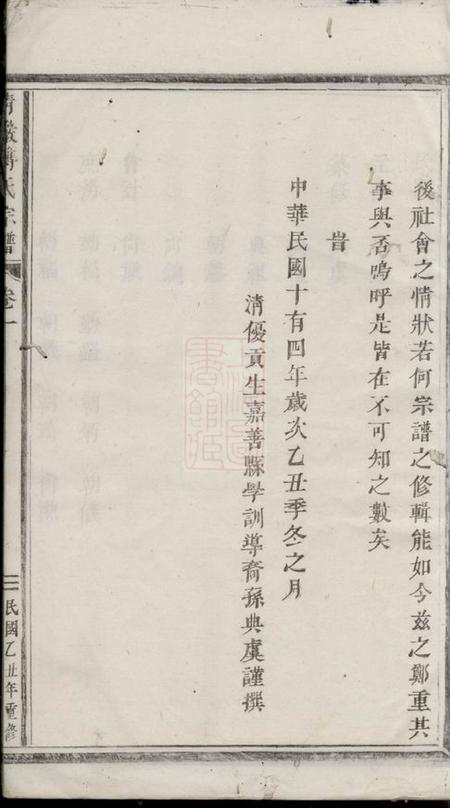 後社會之情狀若何宗譜之修輯能如今茲之鄭重其
事與否嗚呼是皆在不可知之數矣
旹
中華民國十有四年歲次乙丑季冬之月
清優貢生嘉善縣學訓導裔孫典虞謹撰
氏宗譜
卷一
民國乙丑年重修